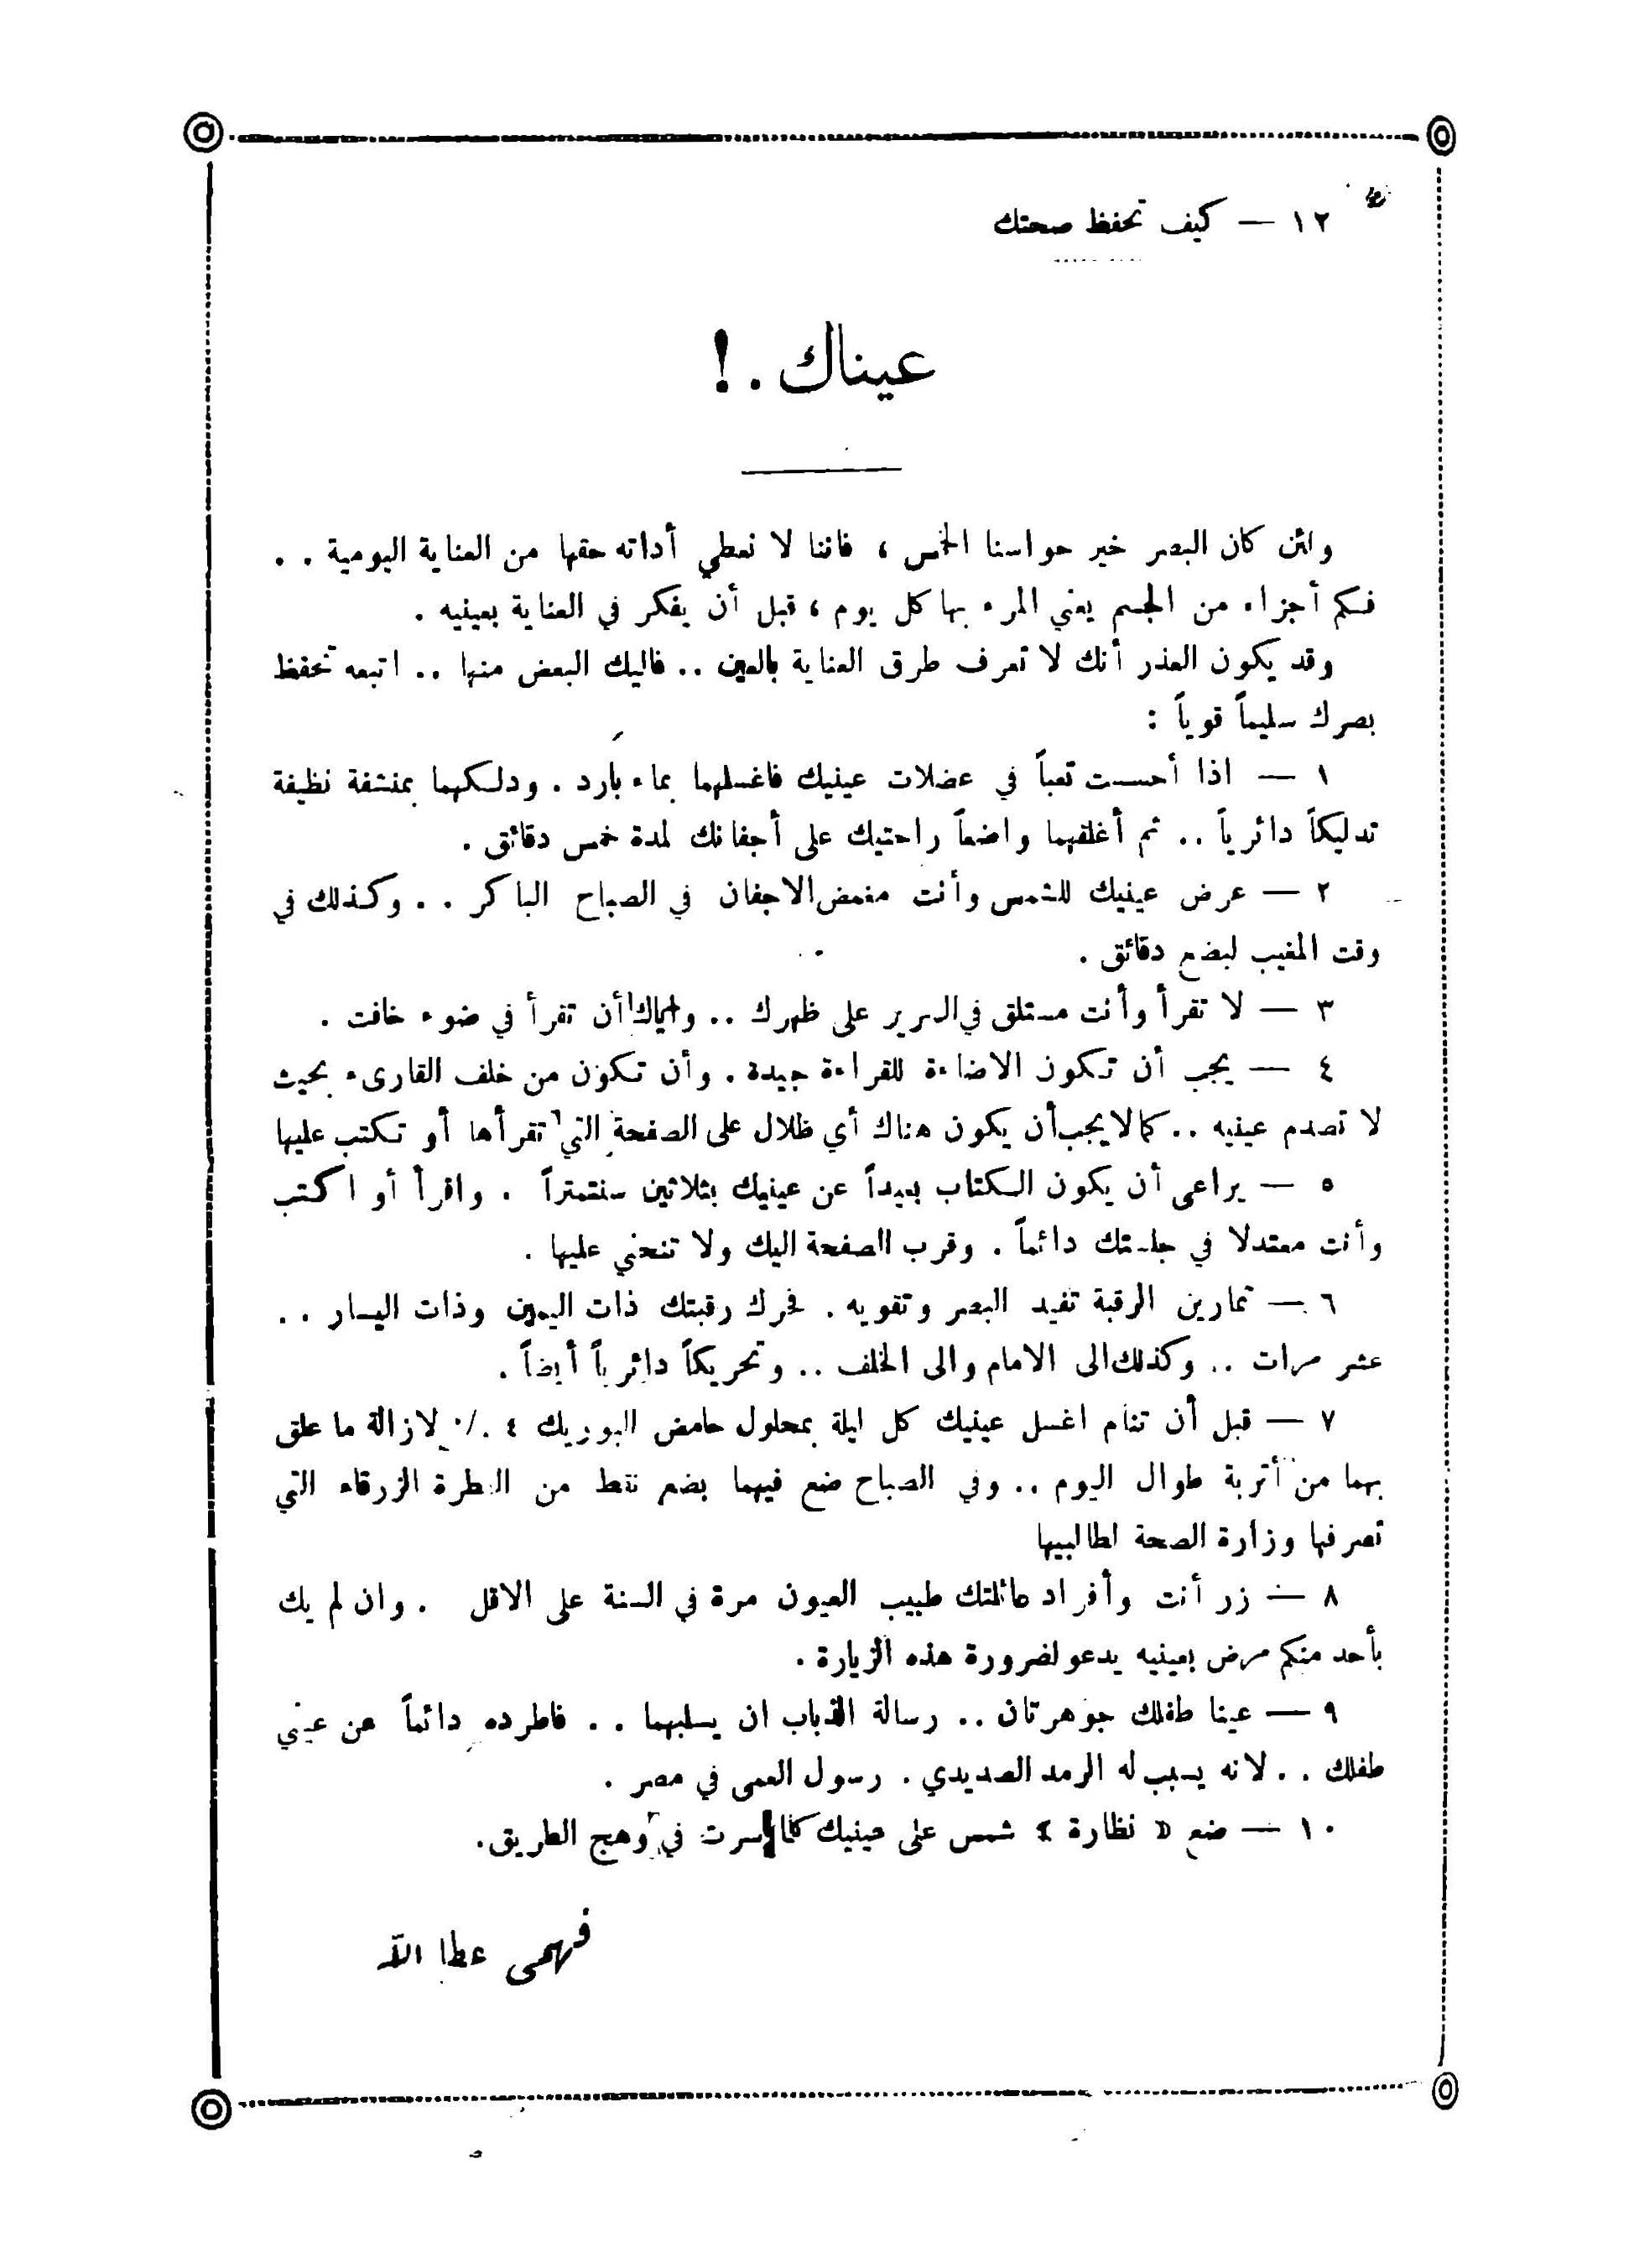 ١٢ — كيف تحفظ صحتك
عيناك .!
ولئن كان البصر خير حواسنا الخمس ، فاننا لا نعطي أداته حقها من العناية اليومية . .
فكم أجزاء من الجسم يعني المرء بها كل يوم ، قبل أن يفكر في العناية بعينيه .
وقد يكون العذر أنك لا تعرف طرق العناية بالعين .. فاليك البعض منها .. اتبعه تحفظ
بصرك سليماً قوياً :
١ — اذا أحسست تعباً في عضلات عينيك فاغسلهما بماء بارد . ودلكهما بمنشفة نظيفة
تدليكاً دائرياً .. ثم أغلقهما واضعاً راحتيك على أجفانك لمدة خمس دقائق .
٢ — عرض عينيك للشمس وأنت مغمض الاجفان في الصباح الباكر . . وكذلك في
وقت المغيب لبضع دقائق .
٣ — لا تقرأ وأنت مستلق في السرير على ظهرك .. واياك أن تقرأ في ضوء خافت .
٤ — يجب أن تكون الاضاءة للقراءة جيدة . وأن تكون من خلف القارىء بحيث
لا تصدم عينيه .. كما لا يجب أن يكون هناك أي ظلال على الصفحة التي تقرأها أو تكتب عليها
٥ — يراعى أن يكون الكتاب بعيداً عن عينيك بثلاثين سنتمتراً . واقرأ أو اكتب
وأنت معتدلا في جلستك دائماً . وقرب الصفحة اليك ولا تنحني عليها .
٦ — تمارين الرقبة تفيد البصر وتقويه . فحرك رقبتك ذات اليمين وذات اليسار . .
عشر مرات .. وكذلك الى الامام والى الخلف .. وتحريكاً دائرياً أيضاً .
٧ — قبل أن تنام اغسل عينيك كل ليلة بمحلول حامض البوريك ٤ ٪ لازالة ما علق
بهما من أتربة طوال اليوم .. وفي الصباح ضع فيهما بضع نقط من القطرة الزرقاء التي
تصرفها وزارة الصحة لطالبيها
٨ — زر أنت وأفراد عائلتك طبيب العيون مرة في السنة على الاقل . وان لم يك
بأحد منكم مرض بعينيه يدعو لضرورة هذه الزيارة .
٩ — عينا طفلك جوهرتان .. رسالة الذباب ان يسلبهما . . فاطرده دائماً عن عيني
طفلك . . لانه يسبب له الرمد الصديدي . رسول العمى في مصر .
١٠ — ضع « نظارة » شمس على عينيك كلما سرت في وهج الطريق .
فهمى عطا الله